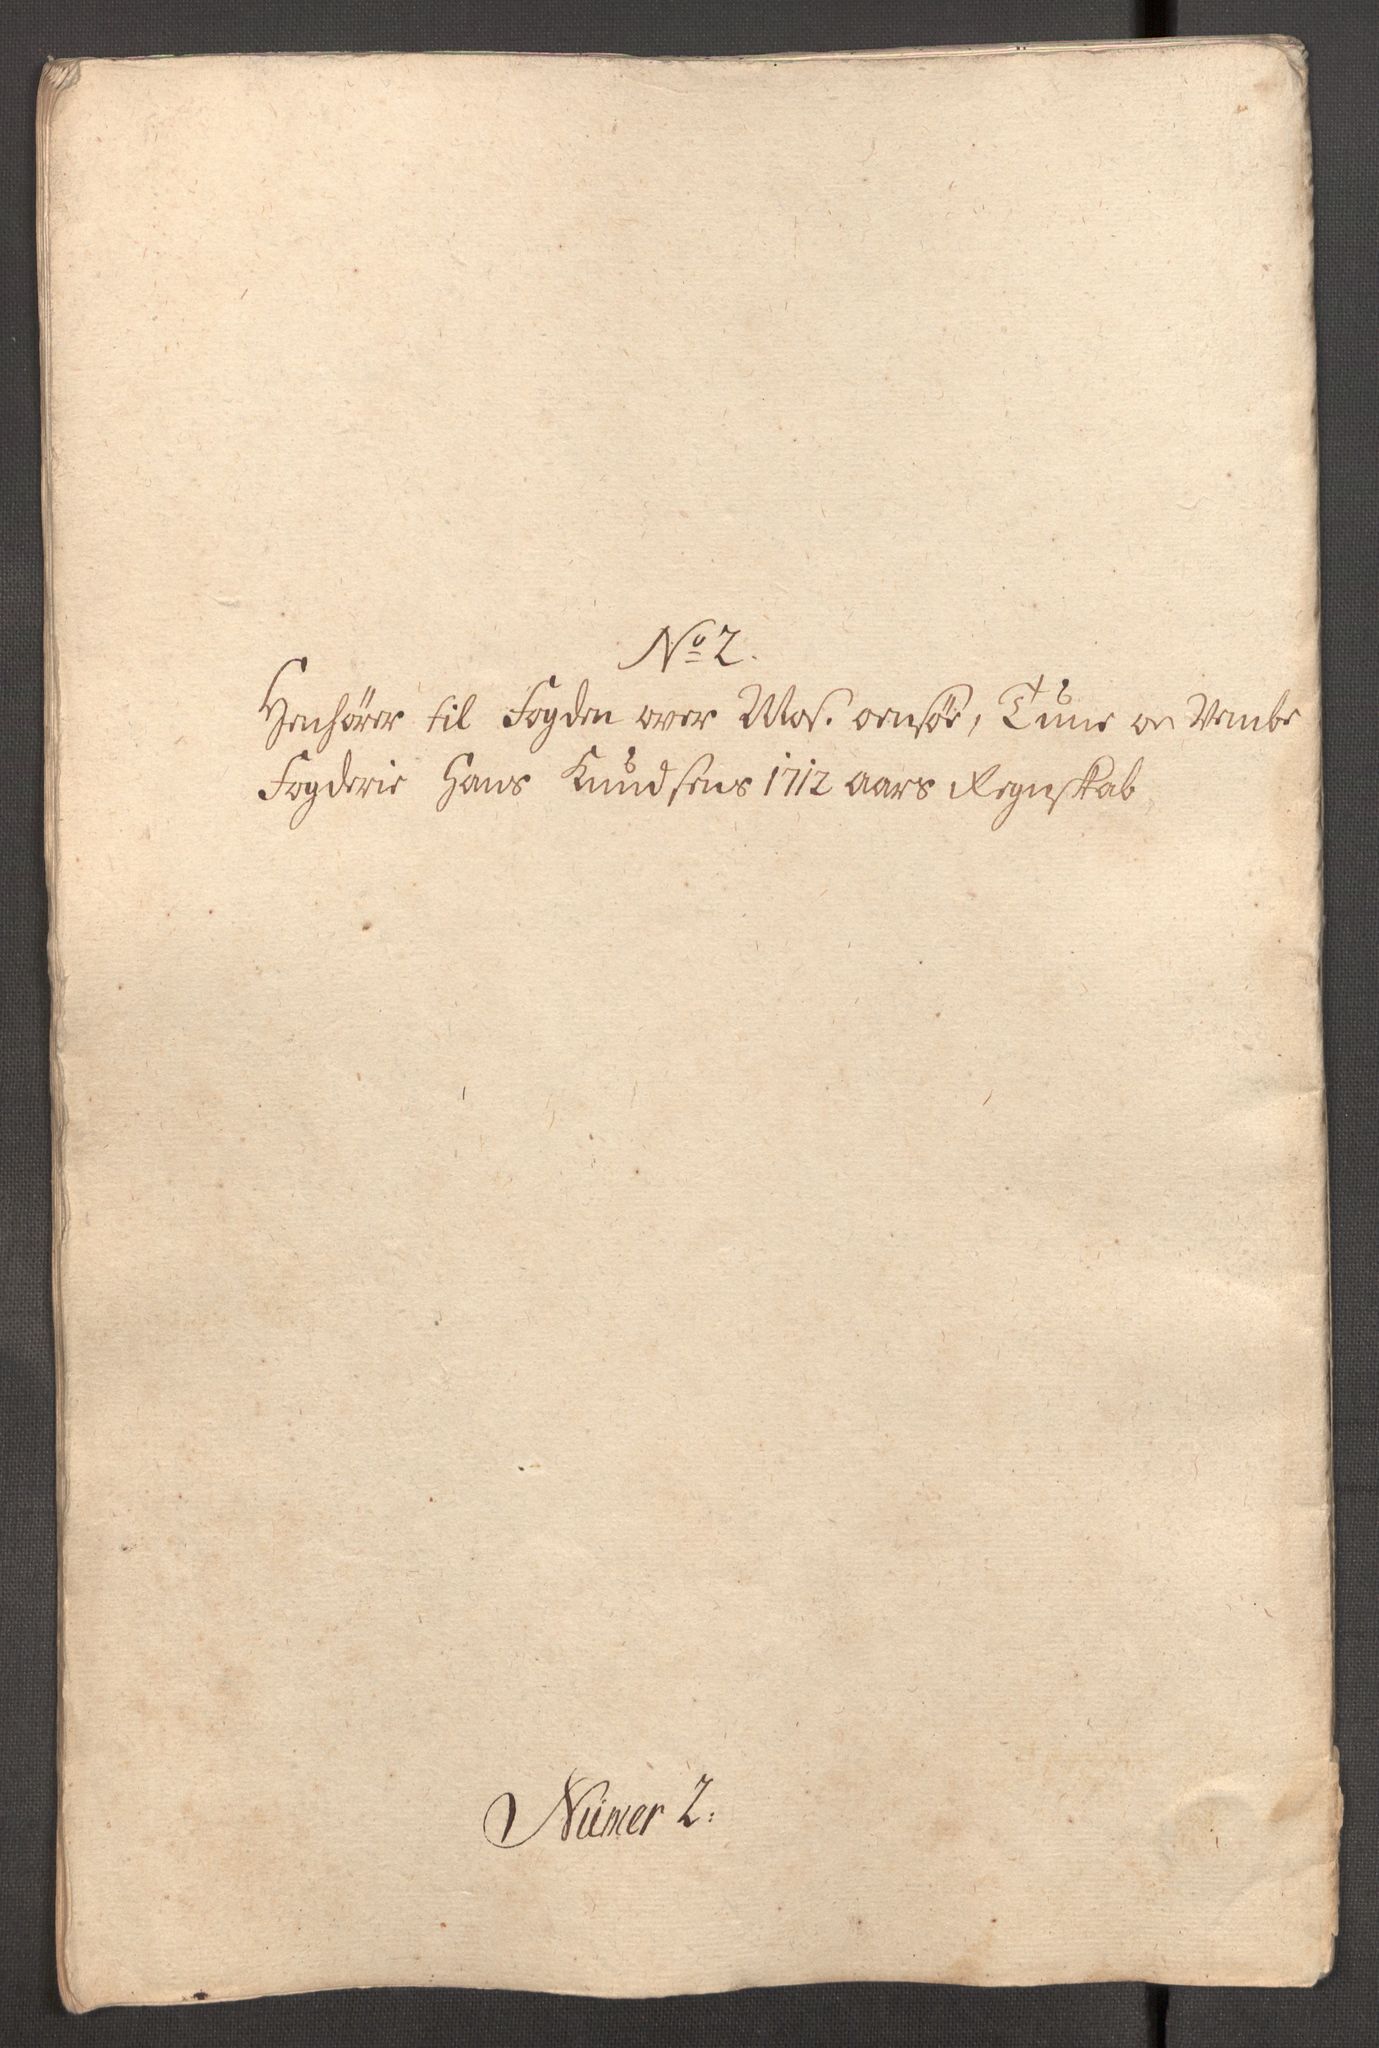 No 2.
Henhører til Fogden over Mos. oensøe, Tune oc Vembe
Fogderie Hans Knudsens 1712 aars Regnskab
Numer 2: